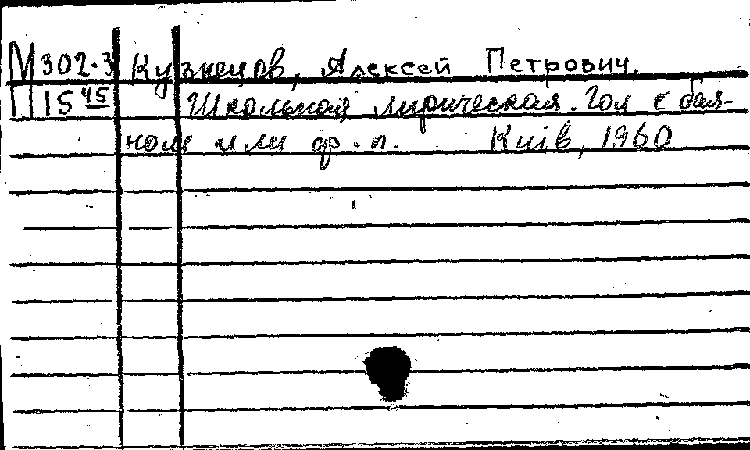 М302.3 Кузнецов, Алексей Петрович.
15 45 Школьная лирическая. Гол с бая-
ном или ф.п. Київ, 1960